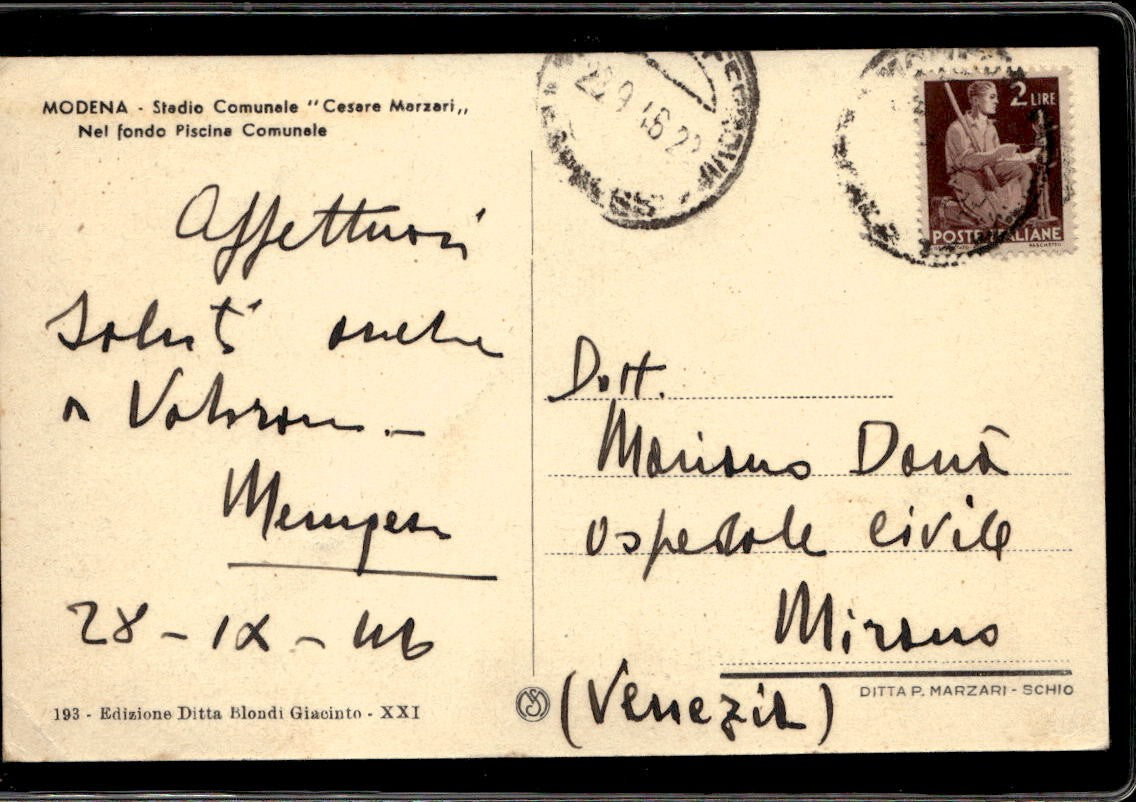 MODENA - Stadio Comunale "Cesare Marzari„
Nel fondo Piscina Comunale
Affettuosi
saluti anche
a
28-IX-46
193 - Edizione Ditta Biondi Giacinto - XXI
22 9 46 22
2 LIRE
POSTE ITALIANE
Dott.
Mariano Donà
Ospedale Civile
Mirano
(Venezia)
DITTA P. MARZARI - SCHIO